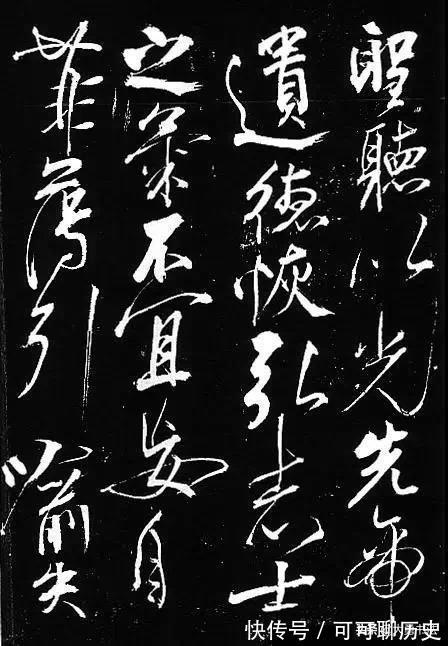 聖聽以光先帝
遺德恢弘志士
之氣不宜妄自
菲薄引喻失
快传号 / 可可聊历史